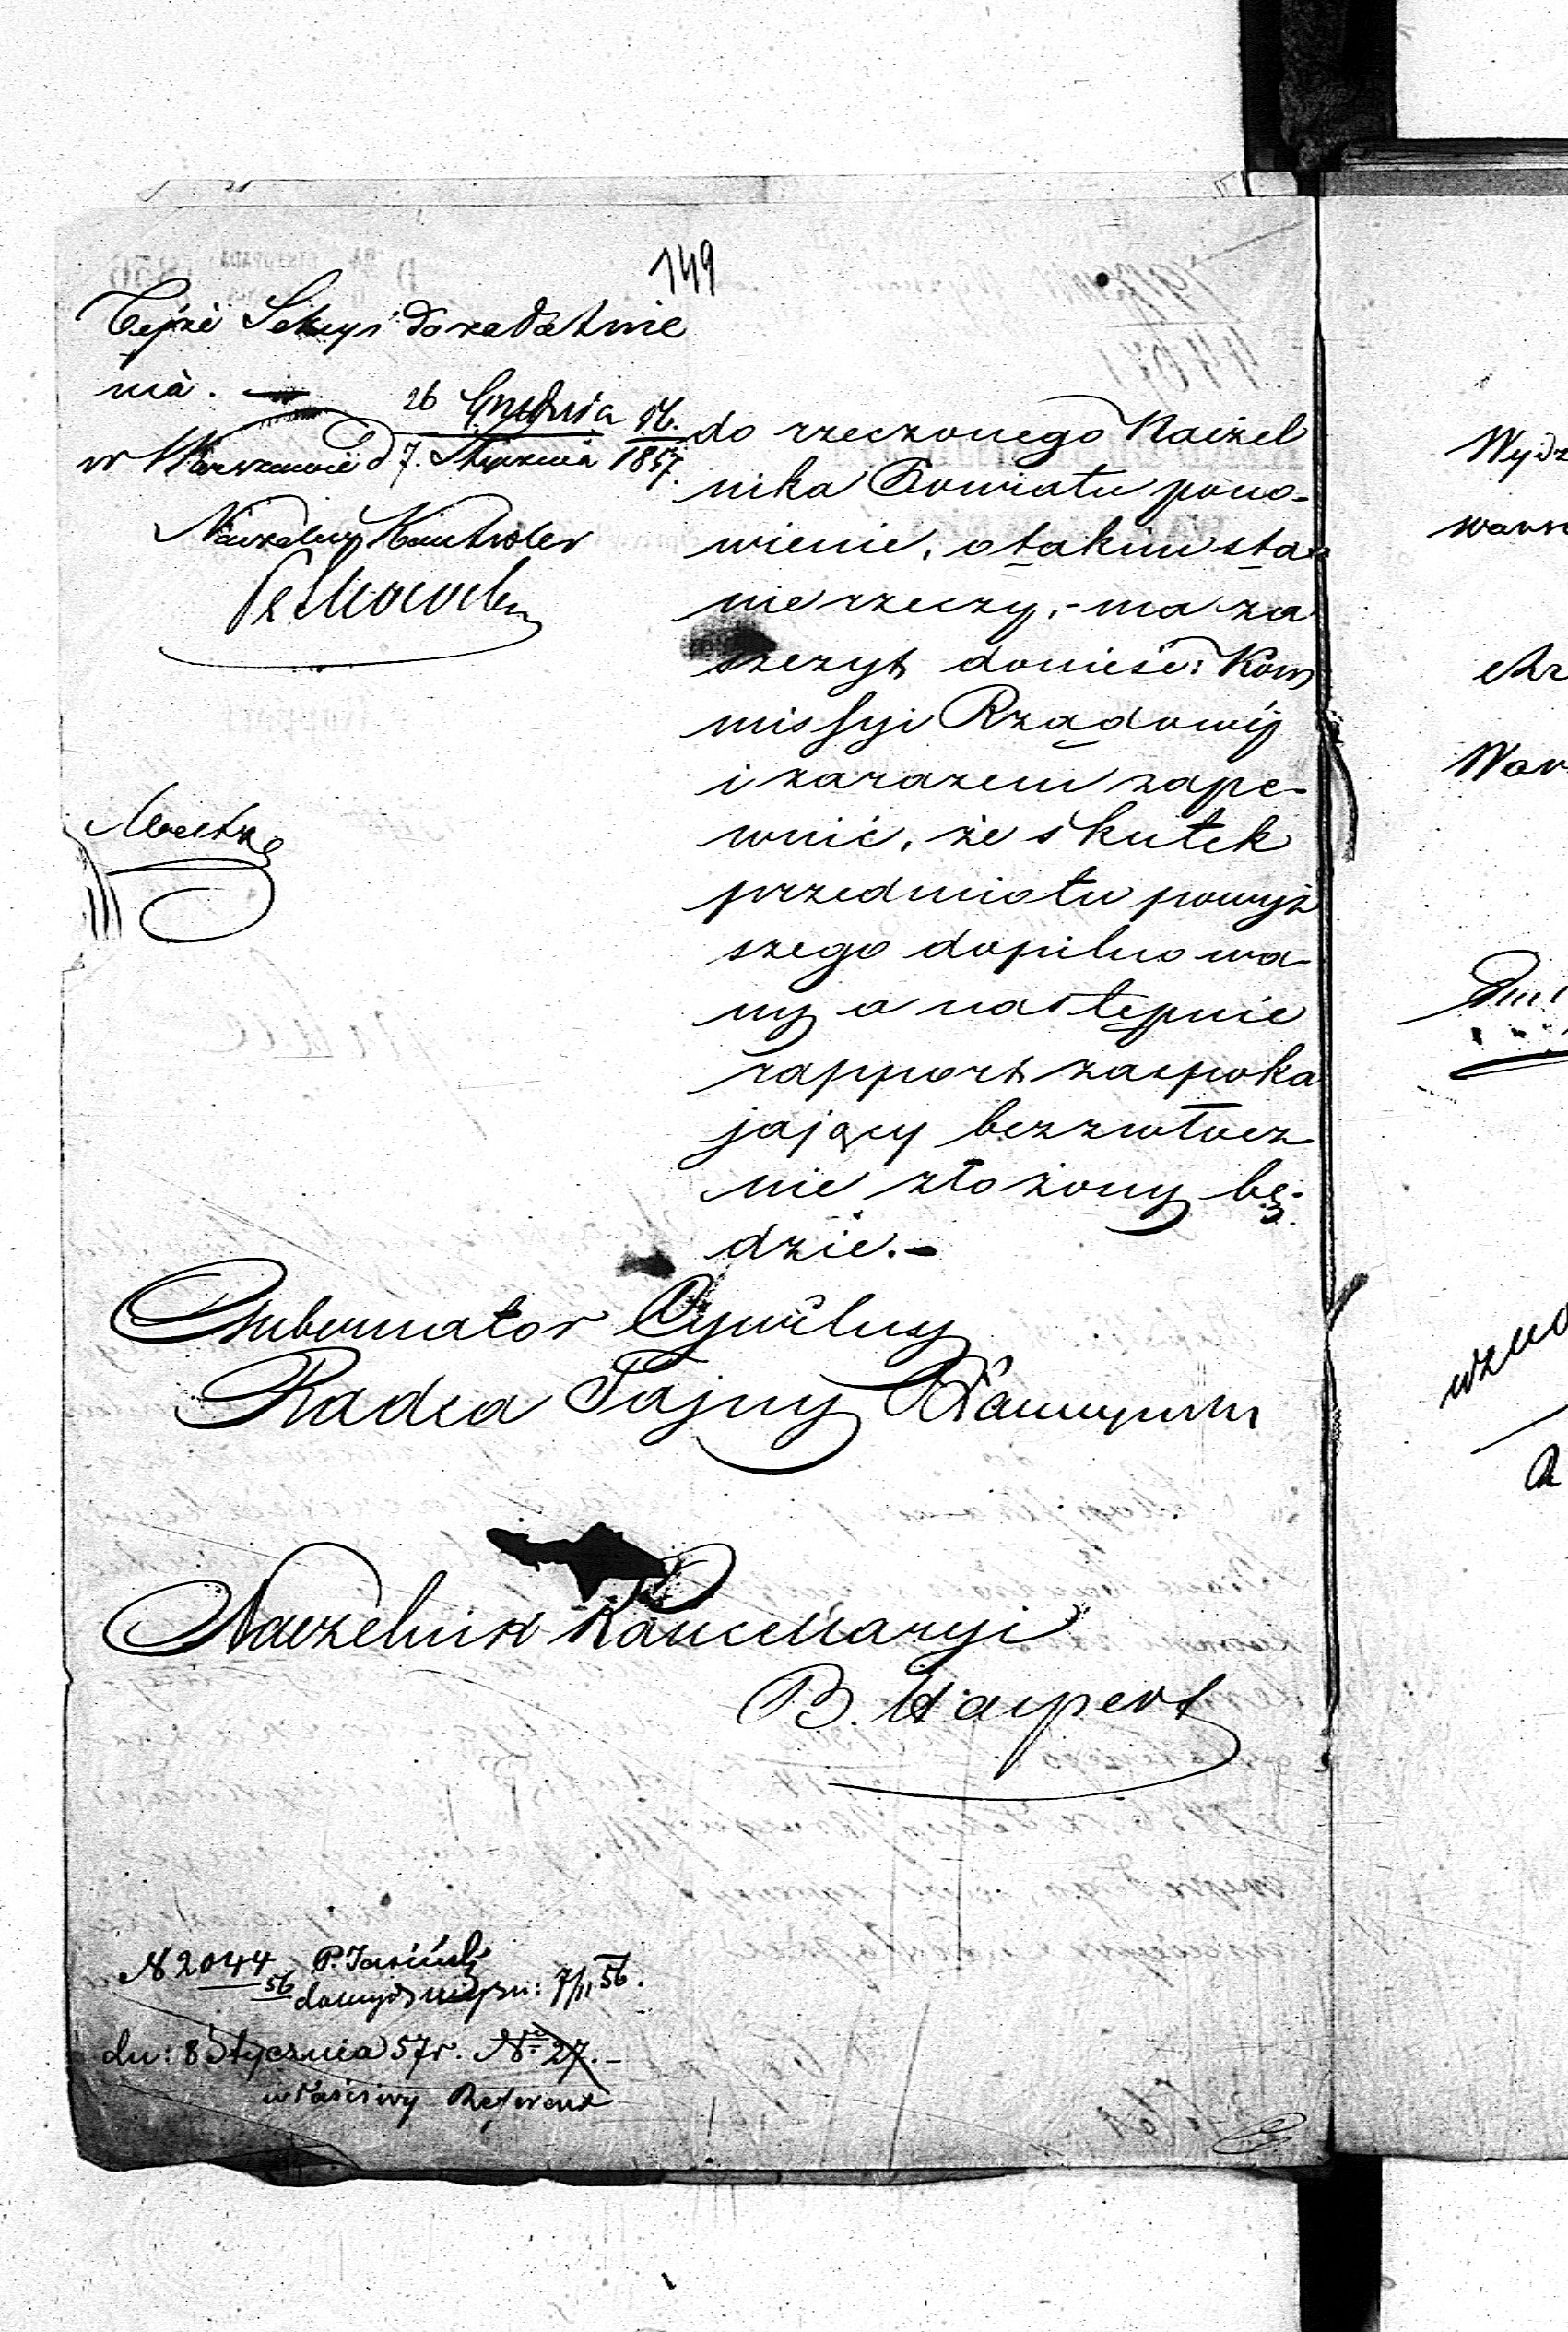 149
Tejże Sekcyi do załatwie
nia. —
26 Grudnia 56.
w Warszawie d 7. Stycznia 1857.
Naczelny Kontroler
do rzeczonego Naczel
nika Powiatu pono-
wienie, o takim sta-
nie rzeczy,- ma za
szczyt donieść Kom
missyi Rządowéj
i zarazem zape-
wnić, że skutek
przedmiotu powyż
szego dopilnowa-
ny a następnie
rapport zaspoka
jający bezzwłocz-
nie złożony bę-
dzie.-
Gubernator Cywilny
Radca Tajny
Naczelnik Kancellaryi
B. Halpert
N 2044
56
7/11 56.
dn: 8 Stycznia 57 r. No 27.-
właściwy Referent